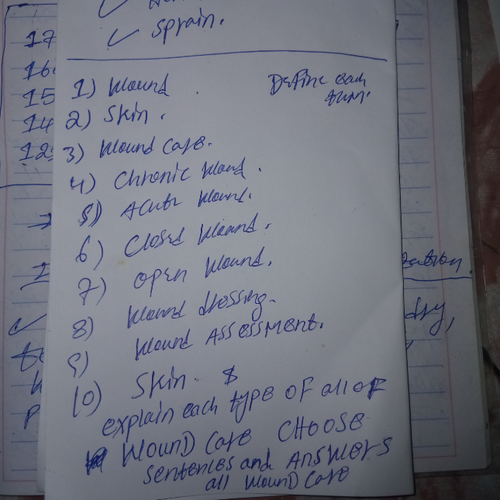 ✓ Sprain.
1) Wound.
Define each
turm.
2) Skin.
3) Wound care.
4) Chronic Wound.
5) Acute Wound.
6) Closed Wound.
7) open Wound.
8) Wound dressing.
9) Wound ASSESSMENT.
10) Skin.
explain each type of all of
WOUND Care CHOOSE
sentences and ANSWERS
all Wound Care
17
16
15
14
12
dry,